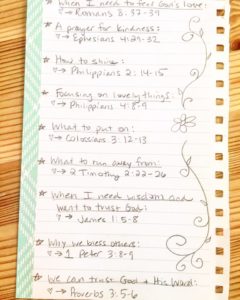 ☆ When I need to feel God's love:
♡→ Romans 8:37-39
☆ A prayer for kindness:
♡→ Ephesians 4:29-32
☆ How to shine:
♡→ Philippians 2:14-15
☆ Focusing on lovely things:
♡→ Philippians 4:8-9
☆ What to put on:
♡→ Colossians 3:12-13
☆ What to run away from:
♡→ 2 Timothy 2:22-26
☆ When I need wisdom and
want to trust God:
♡→ James 1:5-8
☆ Why we bless others:
♡→ 1 Peter 3:8-9
☆ We can trust God & His Word:
♡→ Proverbs 3:5-6